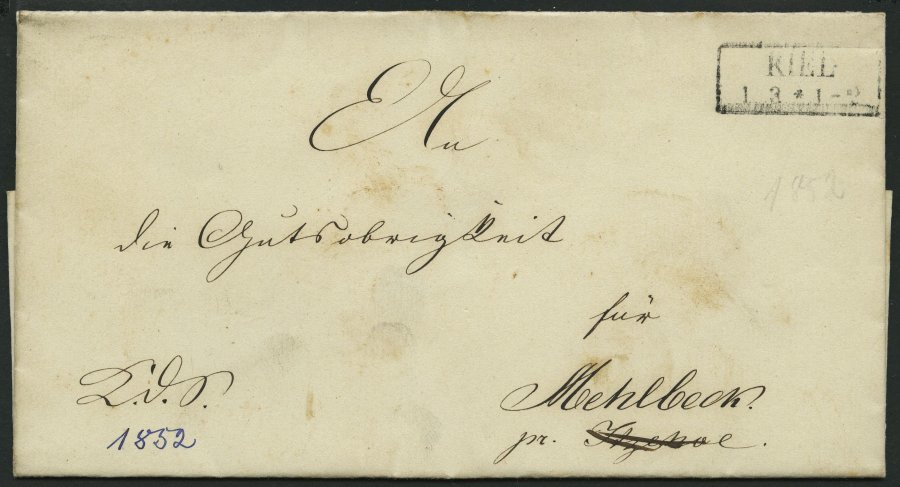 KIEL
1 3 * 1-2
An
1852
die Gutsobrigkeit
für
K.d.S.
Mehlbeck.
1852
pr. Itzehoe.